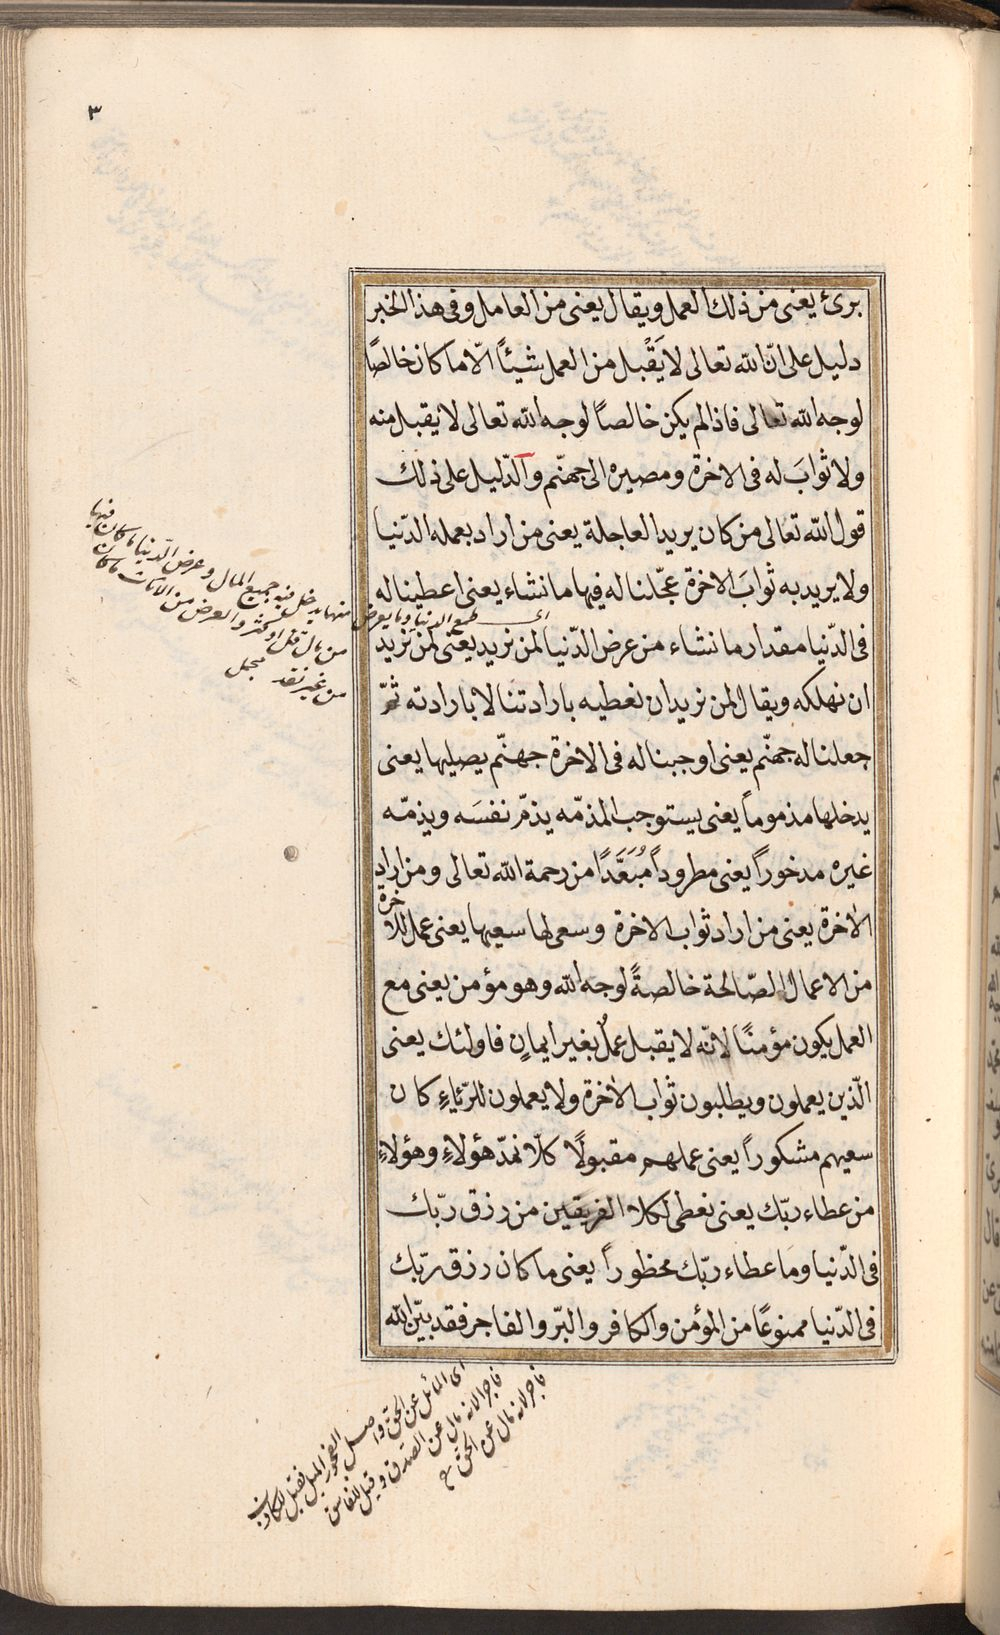 ٣
برئ يعنى من ذلك العمل ويقال يعنى من العامل وفى هذا الخبر
دليل على انّ الله تعالى لا يَقْبل من العمل شيئاً الّا ما كان خالصًا
لوجه الله تعالى فاذا لم يكن خالصاً لوجه الله تعالى لا يقبل منه
ولا ثوابَ له فى الاخرة ومصيره الى جهنّم والدّليل على ذلك
قول الله تعالى من كان يريد العاجلة يعنى من اراد بعمله الدّنيا
ولا يريد به ثوابَ الاخرة عجّلنا له فيها ما نشاء يعنى اعطيناله
فى الدّنيا مقدار ما نشاء من عرض الدّنيا لمن نريد يعنى لمن نريد
ان نهلكه ويقال لمن نريد ان نعطيه بارادتنا لا بارادته ثمّ
جعلنا له جهنّم يعنى اوجبنا له فى الاخرة جهنّم يصليها يعنى
يدخلها مذموماً يعنى يستوجب المذمّه يذمّ نفسَه ويذمّه
غيره مدخوراً يعنى مطروداً مُبَعَّدًا من رحمة الله تعالى ومن اراد
الاخرة يعنى من اراد ثواب الاخرة وسعى لها سعيها يعنى عمل للاخرة
من الاعمال الصّالحة خالصةً لوجه الله وهو مؤمن يعنى مع
العمل يكون مؤمنًا لانّه لا يقبل عملٌ بغير ايمانٍ فاولئك يعنى
الّذين يعملون ويطلبون ثواب الاخرة ولا يعملون للرّئاءِ كان
سعيهم مشكوراً يعنى عملهم مقبولًا كلّا نمدّ هؤلاءِ وهؤلاءِ
من عطاء ربّك يعنى نعطى لكلا الفريقين من رزق ربّك
فى الدّنيا وما عطاء ربّك محظوراً يعنى ما كان رزق ربّك
فى الدّنيا ممنوعًا من المؤمن والكافر والبّر والفاجر فقد بيّن الله
اى طمع الدنيا وما يعرض منها يدخل فيه جميع المال وعرض الدّنيا ما كان فيها
من مال قلّ او كثر والعرض من الاثاث ما كان
من غير نقد مجمل
فاجر لانه مال عن الحق
فاجر لانه مال عن الصدق وقيل للفاسق
اى المائل عن الحق واصل الفجور الميل فقيل للكاذب